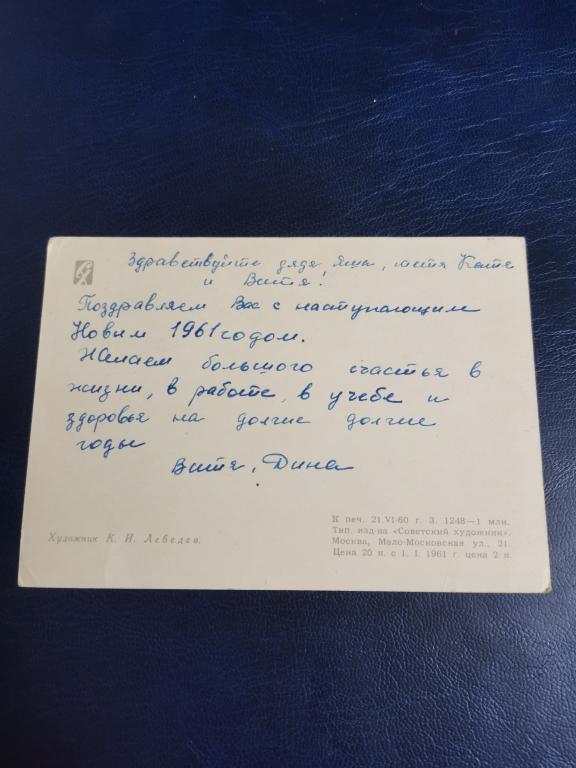 Здравствуйте дядя Яша, тётя Катя
и Витя!
Поздравляем Вас с наступающим
Новым 1961 годом.
Желаем большого счастья в
жизни, в работе, в учебе и
здоровья на долгие долгие
годы
Витя, Дина
Художник К. И. Лебедев.
К печ. 21.VI-60 г. З. 1248—1 млн.
Тип. изд-ва «Советский художник».
Москва, Мало-Московская ул., 21.
Цена 20 к. с 1. I. 1961 г. цена 2 к.